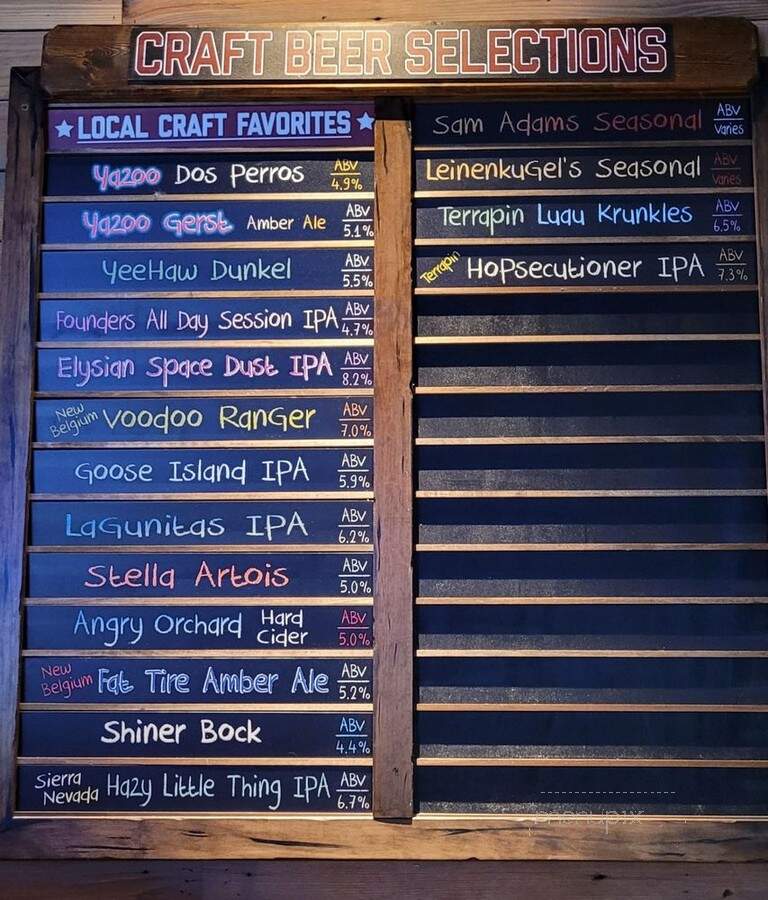 CRAFT BEER SELECTIONS
LOCAL CRAFT FAVORITES
Yazoo Dos Perros ABV 4.9%
Yazoo Gerst Amber Ale ABV 5.1%
YeeHaw Dunkel ABV 5.5%
Founders All Day Session IPA ABV 4.7%
Elysian Space Dust IPA ABV 8.2%
New Belgium Voodoo Ranger ABV 7.0%
Goose Island IPA ABV 5.9%
Lagunitas IPA ABV 6.2%
Stella Artois ABV 5.0%
Angry Orchard Hard Cider ABV 5.0%
New Belgium Fat Tire Amber Ale ABV 5.2%
Shiner Bock ABV 4.4%
Sierra Nevada Hazy Little Thing IPA ABV 6.7%
Sam Adams Seasonal ABV Varies
Leinenkugel's Seasonal ABV Varies
Terrapin Luau Krunkles ABV 6.5%
Terrapin HoPsecutioner IPA ABV 7.3%